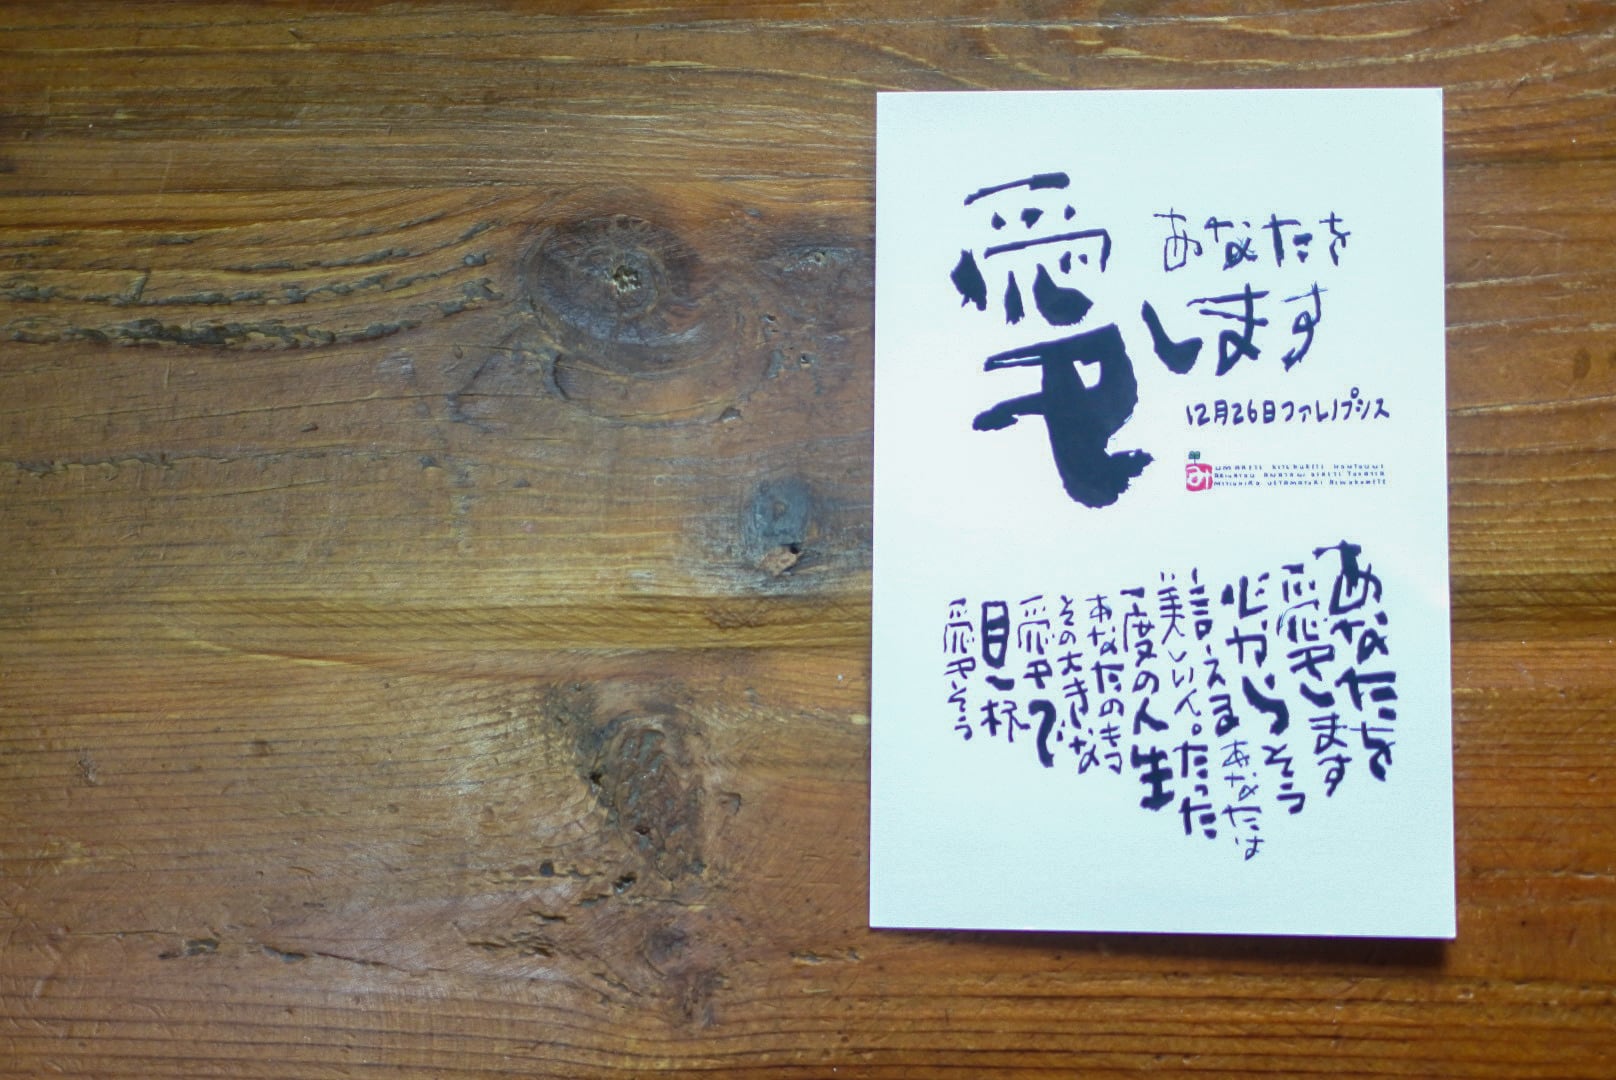 あなたを
愛します
12月26日ファレノプシス
み
UMARETE KITEKURETE HONTOUNI
ARIGATOU ANATANI DEAETE YOKATTA
あなたを
愛します
心からそう
言えるあなたは
美しい人。たった
一度の人生
あなたのもつ
その大きな
愛で
目一杯
愛そう